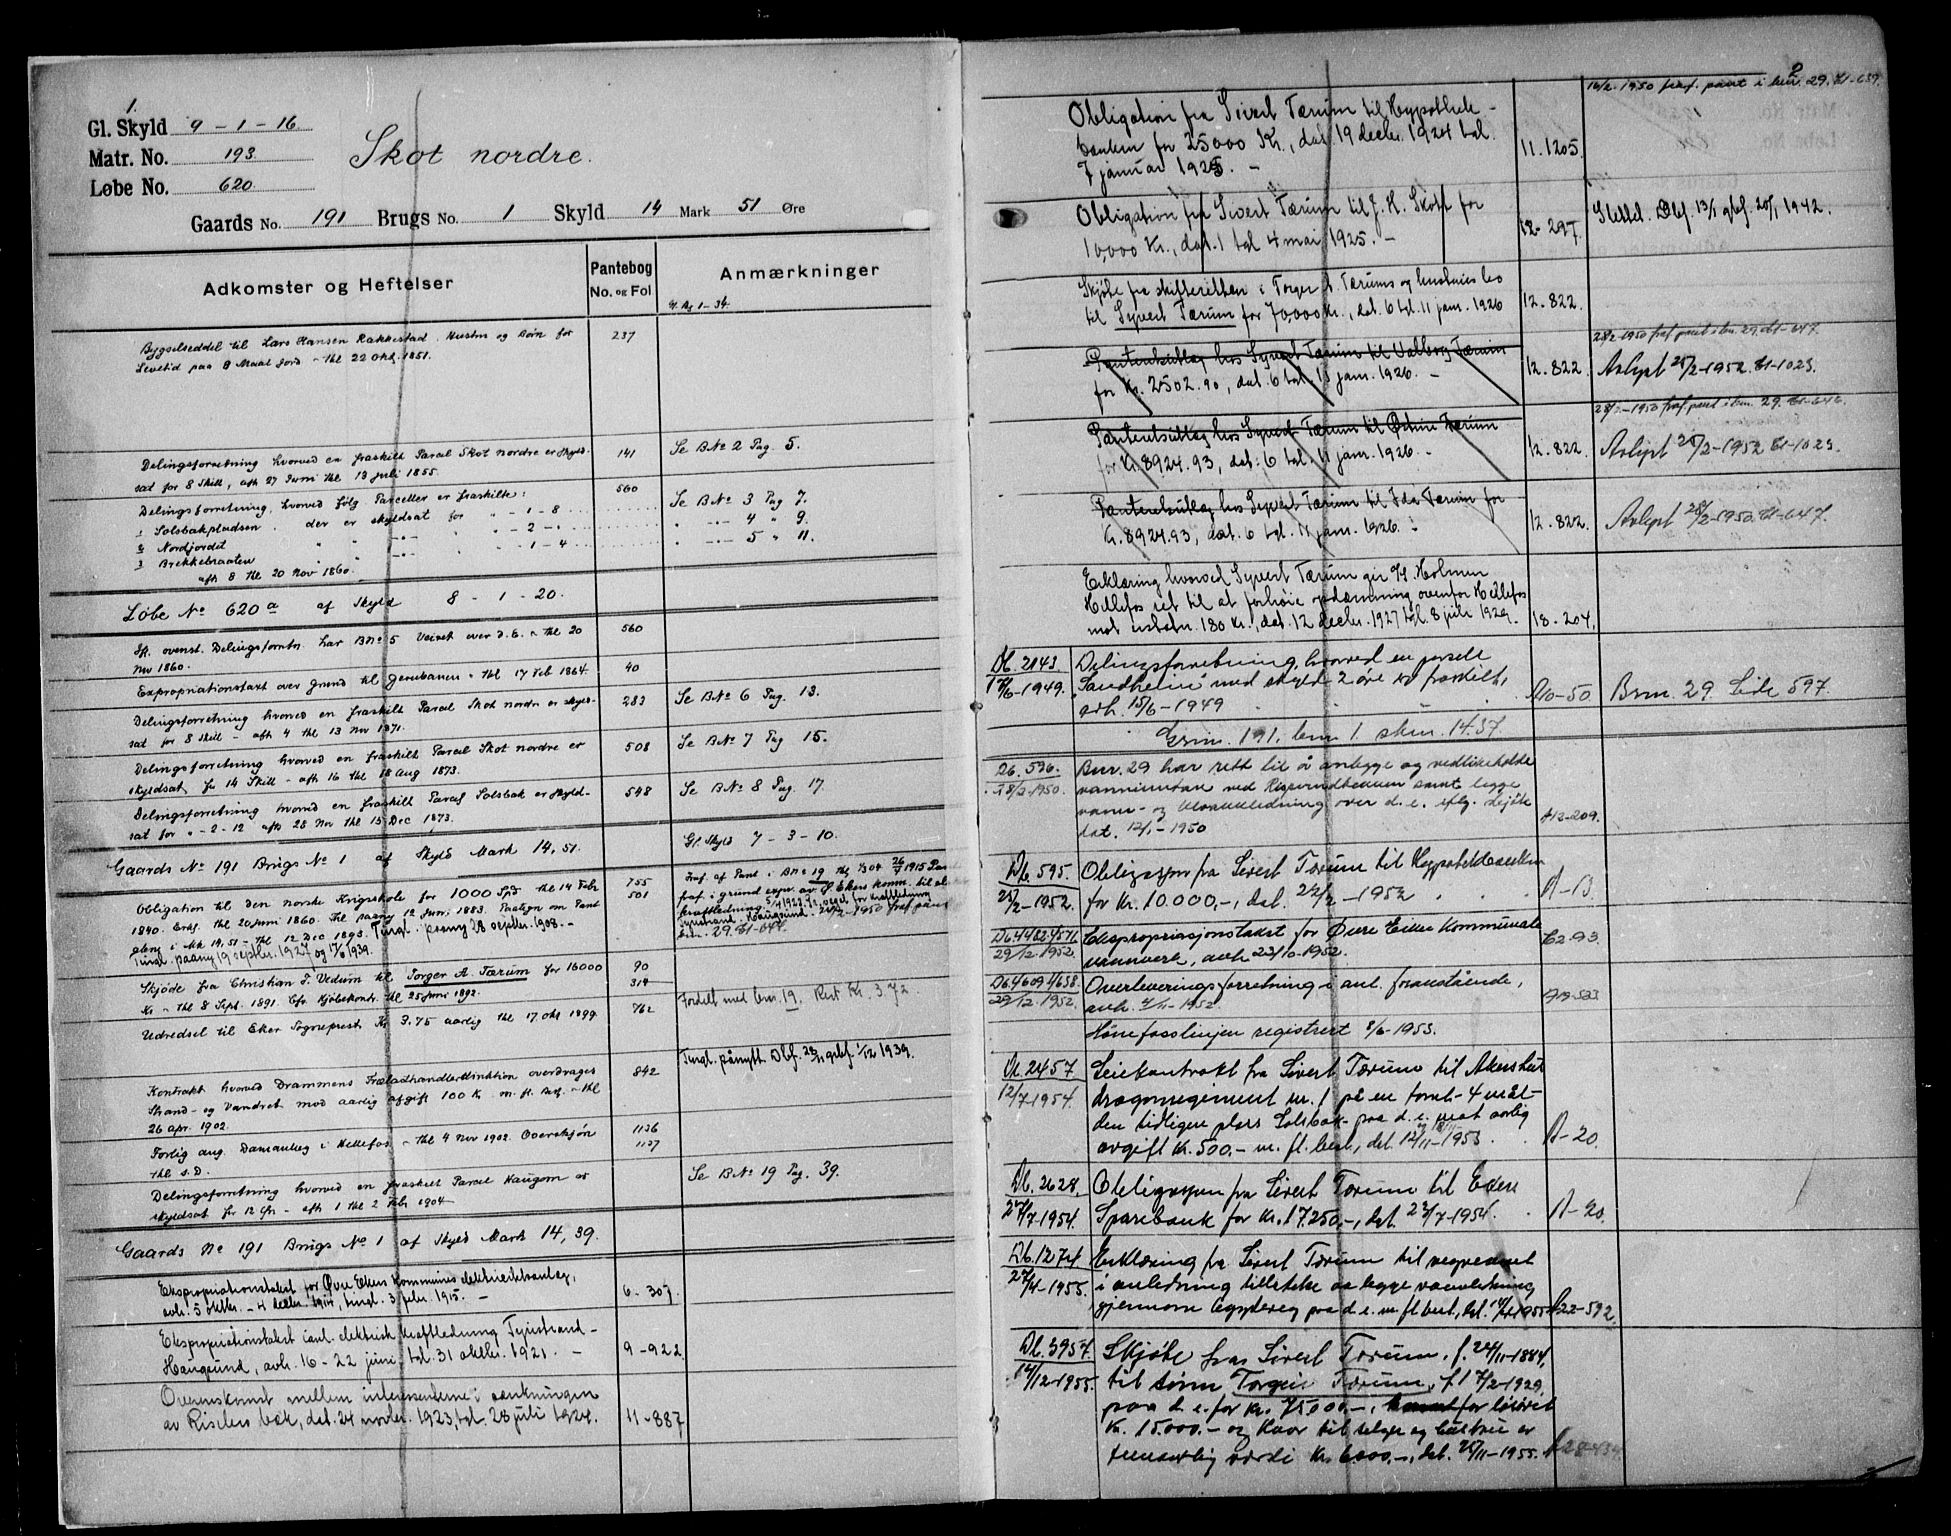 1.
Gl. Skyld 9 - 1 - 16
Matr. No. 193.
Løbe No. 620.
Skot nordre.
Gaards No. 191 Brugs No. 1 Skyld 14 Mark 51 Øre
Adkomster og Heftelser
Pantebog
No. og Fol
Anmærkninger
Bygselseddel til Lars Hansen Rakkestad, Hustru og Børn for 237
Levetid paa 8 Maal Jord - thl 22 Okt. 1851.
Delingsforretning hvorved en fraskilt Parcel Skot nordre er skyld- 141 Se B No 2 Pag. 5.
sat for 8 Skill, afh 27 Juni thl 19 Juli 1855.
Delingsforretning, hvorved følg. Parceller er fraskilte: 560 Se B No 3 Pag 7.
1 Solsbakpladsen, der er skyldsat for " - 1 - 8 " - 4 " 9.
2 Nordjordet " - 2 - " " - 5 " 11.
3 Brekkebraaten " - 1 - 4
afh 8 thl 20 Nov 1860.
Løbe No 620 a af Skyld 8 - 1 - 20.
If. ovenst. Delingsforretn. har B No 5 Veiret over d. E. - thl 20 560
Nov 1860.
Expropriationstaxt over Grund til Jernbanen - thl 17 Feb 1864. 40
Delingsforretning hvorved en fraskilt Parcel Skot nordre er skyld- 283 Se B No 6 Pag. 13.
sat for 8 Skill - afh 4 thl 13 Nov 1871.
Delingsforretning hvorved en fraskilt Parcel Skot nordre er 508 Se B No 7 Pag 15.
skyldsat for 14 Skill - afh 16 thl 18 Aug 1873.
Delingsforretning hvorved en fraskilt Parcel Solsbak er skyld- 548 Se B No 8 Pag. 17.
sat for " - 2 - 12 afh 28 Nov thl 15 Dec 1873.
Gl. Skyld 7 - 3 - 10.
Gaards No 191 Brugs No 1 af Skyld Mark 14,51.
Obligation til den norske Krigsskole for 1000 Spd thl 14 Febr 755
1840. thl 20 Juni 1860. Thl paany 12 Juni 1883. Paategn om Pant 501
i Mk 14,51 - thl 12 Dec 1893. Tingl. paany 28 septbr. 1908.
Tingl. paany 19 septbr. 1927 og 17/6 1939.
Skjøde fra Christian J. Vedum til Torger A. Tærum for 16000 90
Kr - thl 8 Sept. 1891. Cfr. Kjøbekontr. thl 25 Juni 1892. 314
Udredsel til Eker Sogneprest Kr 3.75 aarlig thl 17 Okt 1899. 762 Fordelt med bnr. 19. Rest Kr. 3.72.
Kontrakt hvorved Drammens overdrages 842 Tingl. pånytt. Dbf. 29/11 gbf. 1/12 1939.
Strand- og Vandret mod aarlig afgift 100 Kr m. fl. Bet. - thl
26 apr. 1902.
Forlig ang. Damanlæg i Hellefos - thl 4 Nov 1902. Overskjøn 1136
thl s. D. 1137
Delingsforretning hvorved en fraskilt Parcel Haugom er Se B No 19 Pag. 39.
skyldsat for 12 Øre - afh 1 thl 2 Febr 1904
Gaards No 191 Brugs No 1 af Skyld Mark 14,39.
Ekspropriationstakst for Øvre Ekers Kommunes elektricitetsanlæg, 6 - 307.
avh. 5 oktbr. - 4 decbr. 1914, tingl. 3 febr. 1915.
Ekspropriationstakst i anl. elektrisk kraftledning Tyristrand -
Haugsund, avh. 16 - 22 juni, tgl. 31 oktbr. 1921. 9 - 922
Overenskomst mellem interessenterne i
av bæk, dat. 24 novbr. 1923, tgl. 28 juli 1924. 11 - 887
2
16/2 1950 fraf. pant i bnr. 29.
Obligation fra Sivert Tærum til Hypothek-
banken for 25000 Kr., dat. 19 decbr. 1924 tgl.
7 januar 1925. - 11. 1205.
Obligation fra Sivert Tærum til J. K. Skott for
10,000 Kr., dat. 1 tgl 4 mai 1925. - 12 - 297. Slettet. Dbf. 13/1 gbf. 20/1 1942.
Skjøte fra skifteretten i Torger A. Tærums og hustrues bo
til Syvert Tærum for 70,000 Kr., dat. 6 tgl. 11 jan. 1926 12. 822.
28/2 - 1950 fraf. pant i bnr. 29. - 647.
Panteutlæg hos Syvert Tærum til Valborg Tærum
for Kr. 2502.90, dat. 6 tgl. 11 jan. 1926. - 12. 822. Avlyst 25/2 - 1952. B1 - 1023.
28/2 - 1950 fraf. pant i bnr. 29. B1 - 646.
Panteutlæg hos Syvert Tærum til Tærum
for Kr. 8924.93, dat. 6 tgl. 11 jan. 1926. - 12. 822. Avlyst 25/2 - 1952 B1 - 1023.
Panteutlæg hos Syvert Tærum til Ida Tærum for
Kr. 8924.93, dat. 6 tgl. 11 jan. 1926. - 12. 822. Avlyst 28/2 - 1950. B1 - 647.
Erklæring hvorved Syvert Tærum gir Holmen
Hellefos ret til at forhøie opdæmning ovenfor Hellefos
mot erstatn. 180 kr., dat. 12 decbr. 1927 tgl. 8 juli 1929. 18 - 204.
Db. 2143. Delingsforretning, hvorved en parsell
17/6 - 1949. "Sandheim" med skyld 2 øre er fraskilt,
avh. 15/6 - 1949 A10 - 50. Bnr. 29 Side 597.
Gnr. 191, bnr. 1. skm. 14.37.
Db. 536. Bnr. 29 har rett til å anlegge og vedlikeholde
28/2 - 1950. vanninntak ved samt legge
vann- og kloakkledning over d. e. iflg. skjøte
dat. 12/1 - 1950 A12 - 209.
Db. 595. Obligasjon fra Sivert Tærum til Hypotekbanken
25/2 - 1952. for Kr. 10.000,-, dat. 22/2 - 1952 A - 13.
Ekspropriasjonstakst for Øvre Eiker Kommunale
29/12 1952. vannverk, avh. 22/10 - 1952. 62 - 93
Db 4609 4658. Overleveringsforretning i anl. foranstående,
29/12 - 1952. avh. 4/11 - 1952
Hønefosslinjen registrert 8/6 - 1953.
Db. 2457. Leiekontrakt fra Sivert Tærum til Akershus
12/7 1954. dragonregiment nr. 1 på en tomt - 4 mål -
den tidligere plass Solsbak paa d. e. mot aarlig
avgift Kr. 500,- m. fl. best., dat. 12/11 - 1953. A - 20.
Db. 2628. Obligasjon fra Sivert Tærum til Eker
27/7 - 1954. Sparebank for Kr. 17.250,-, dat. 23/7 - 1954. A - 20.
Db. 1274. Erklæring fra Sivert Tærum til vegvesenet
27/4 - 1955. i anledning tillatelse aa legge vannledning
gjennom bygdeveg paa d. e. m. fl. best., dat. 14/4 1955 A22 - 592.
Db. 3957. Skjøte fra Sivert Tærum, f. 24/11 - 1884,
14/12 - 1955. til sønn Torgeir Tærum, f. 17/2 - 1929,
paa d. e. for Kr. 75000,-, for løsøret
Kr. 15.000,- og kaar til selger og hustru er
femaarlig verdi Kr. 6000,-, dat. 25/11 - 1955.